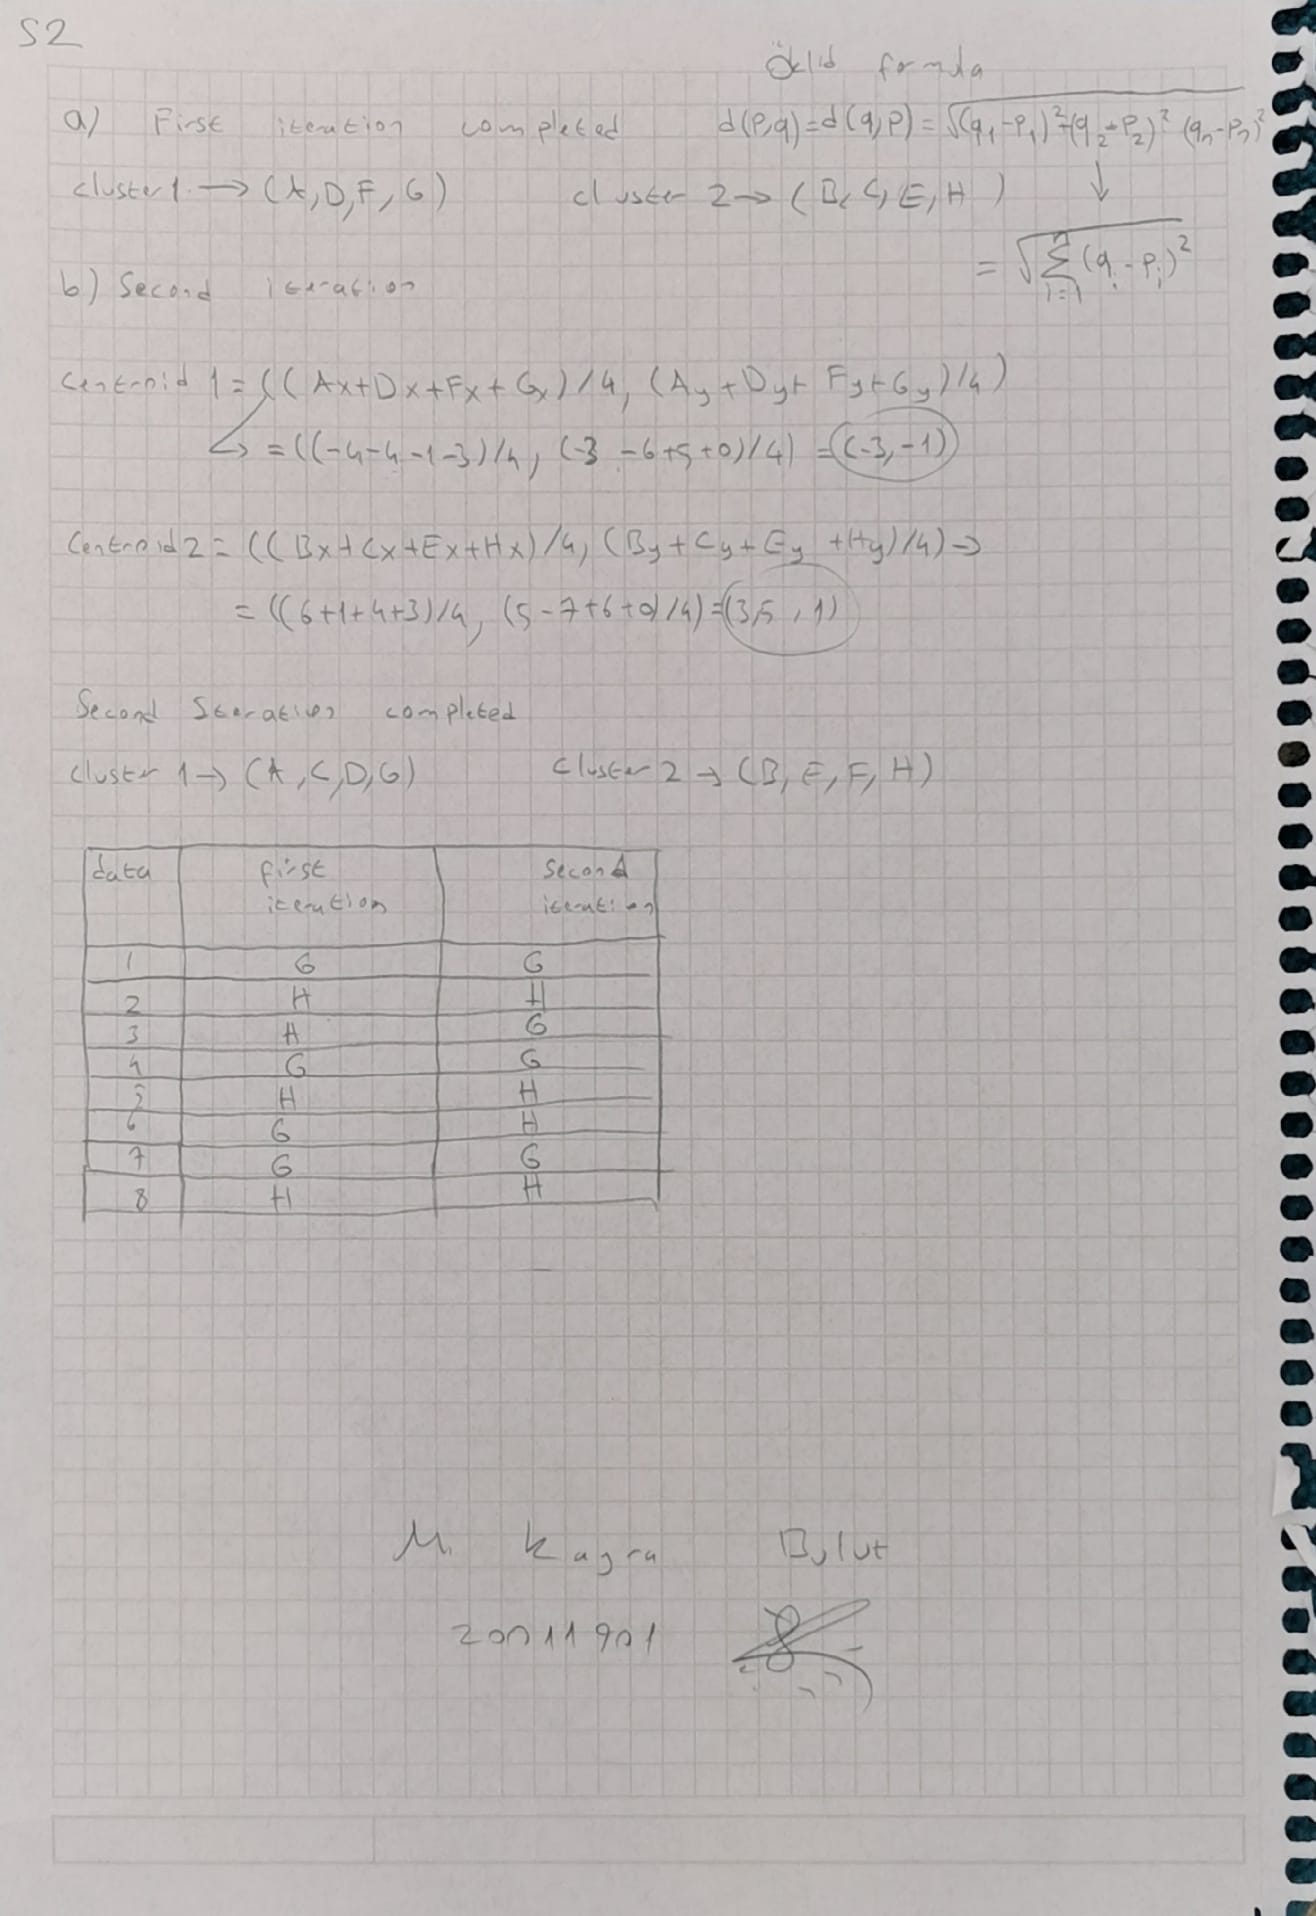 S2
Öklid formula
a) First iteration completed d(p,q)=d(q,p)=√(q₁-p₁)²+(q₂+p₂)² (qₙ-pₙ)²
cluster 1 → (A,D,F,G) cluster 2 → (B, C, E, H) ↓
= √Σ (qᵢ-pᵢ)²
n
i=1
b) Second iteration
Centroid 1 = ((Ax+Dx+Fx+Gx)/4, (Ay+Dy+Fy+Gy)/4)
↳ = ((-4-4-1-3)/4, (-3-6+5+0)/4) = (-3,-1)
Centroid 2 = ((Bx+Cx+Ex+Hx)/4, (By+Cy+Ey+Hy)/4) →
= ((6+1+4+3)/4, (5-7+6+0)/4) = (3,5, 1)
Second Iteration completed
cluster 1 → (A,C,D,G) cluster 2 → (B, E, F, H)
data first iteration second iteration
1 G G
2 H H
3 H G
4 G G
5 H H
6 G H
7 G G
8 H H
M. Kagra Bulut
20011901